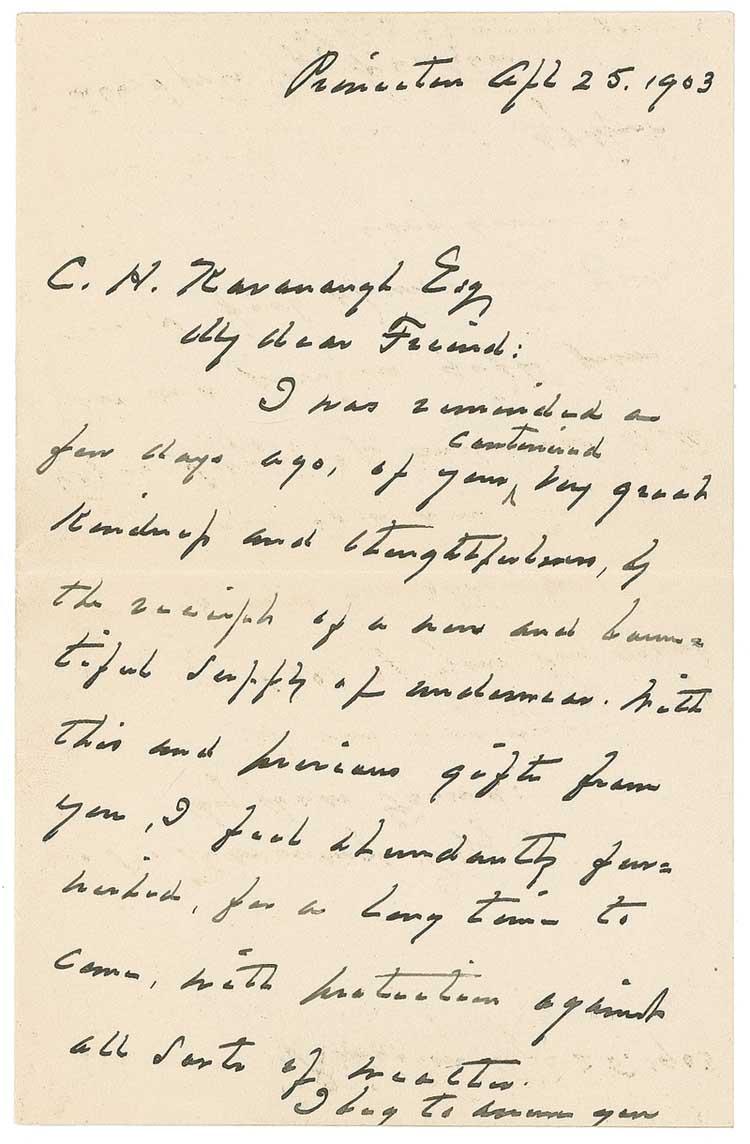 Princeton Apl 25. 1903
C. H. Kavanaugh Esq
My dear Friend:
I was reminded a
few days ago, of your continued very great
kindness and thoughtfulness, by
the receipt of a new and boun=
tiful supply of underwear. With
this and previous gifts from
you, I feel abundantly fur=
nished, for a long time to
come, with protection against
all sorts of weather.
I beg to assure you